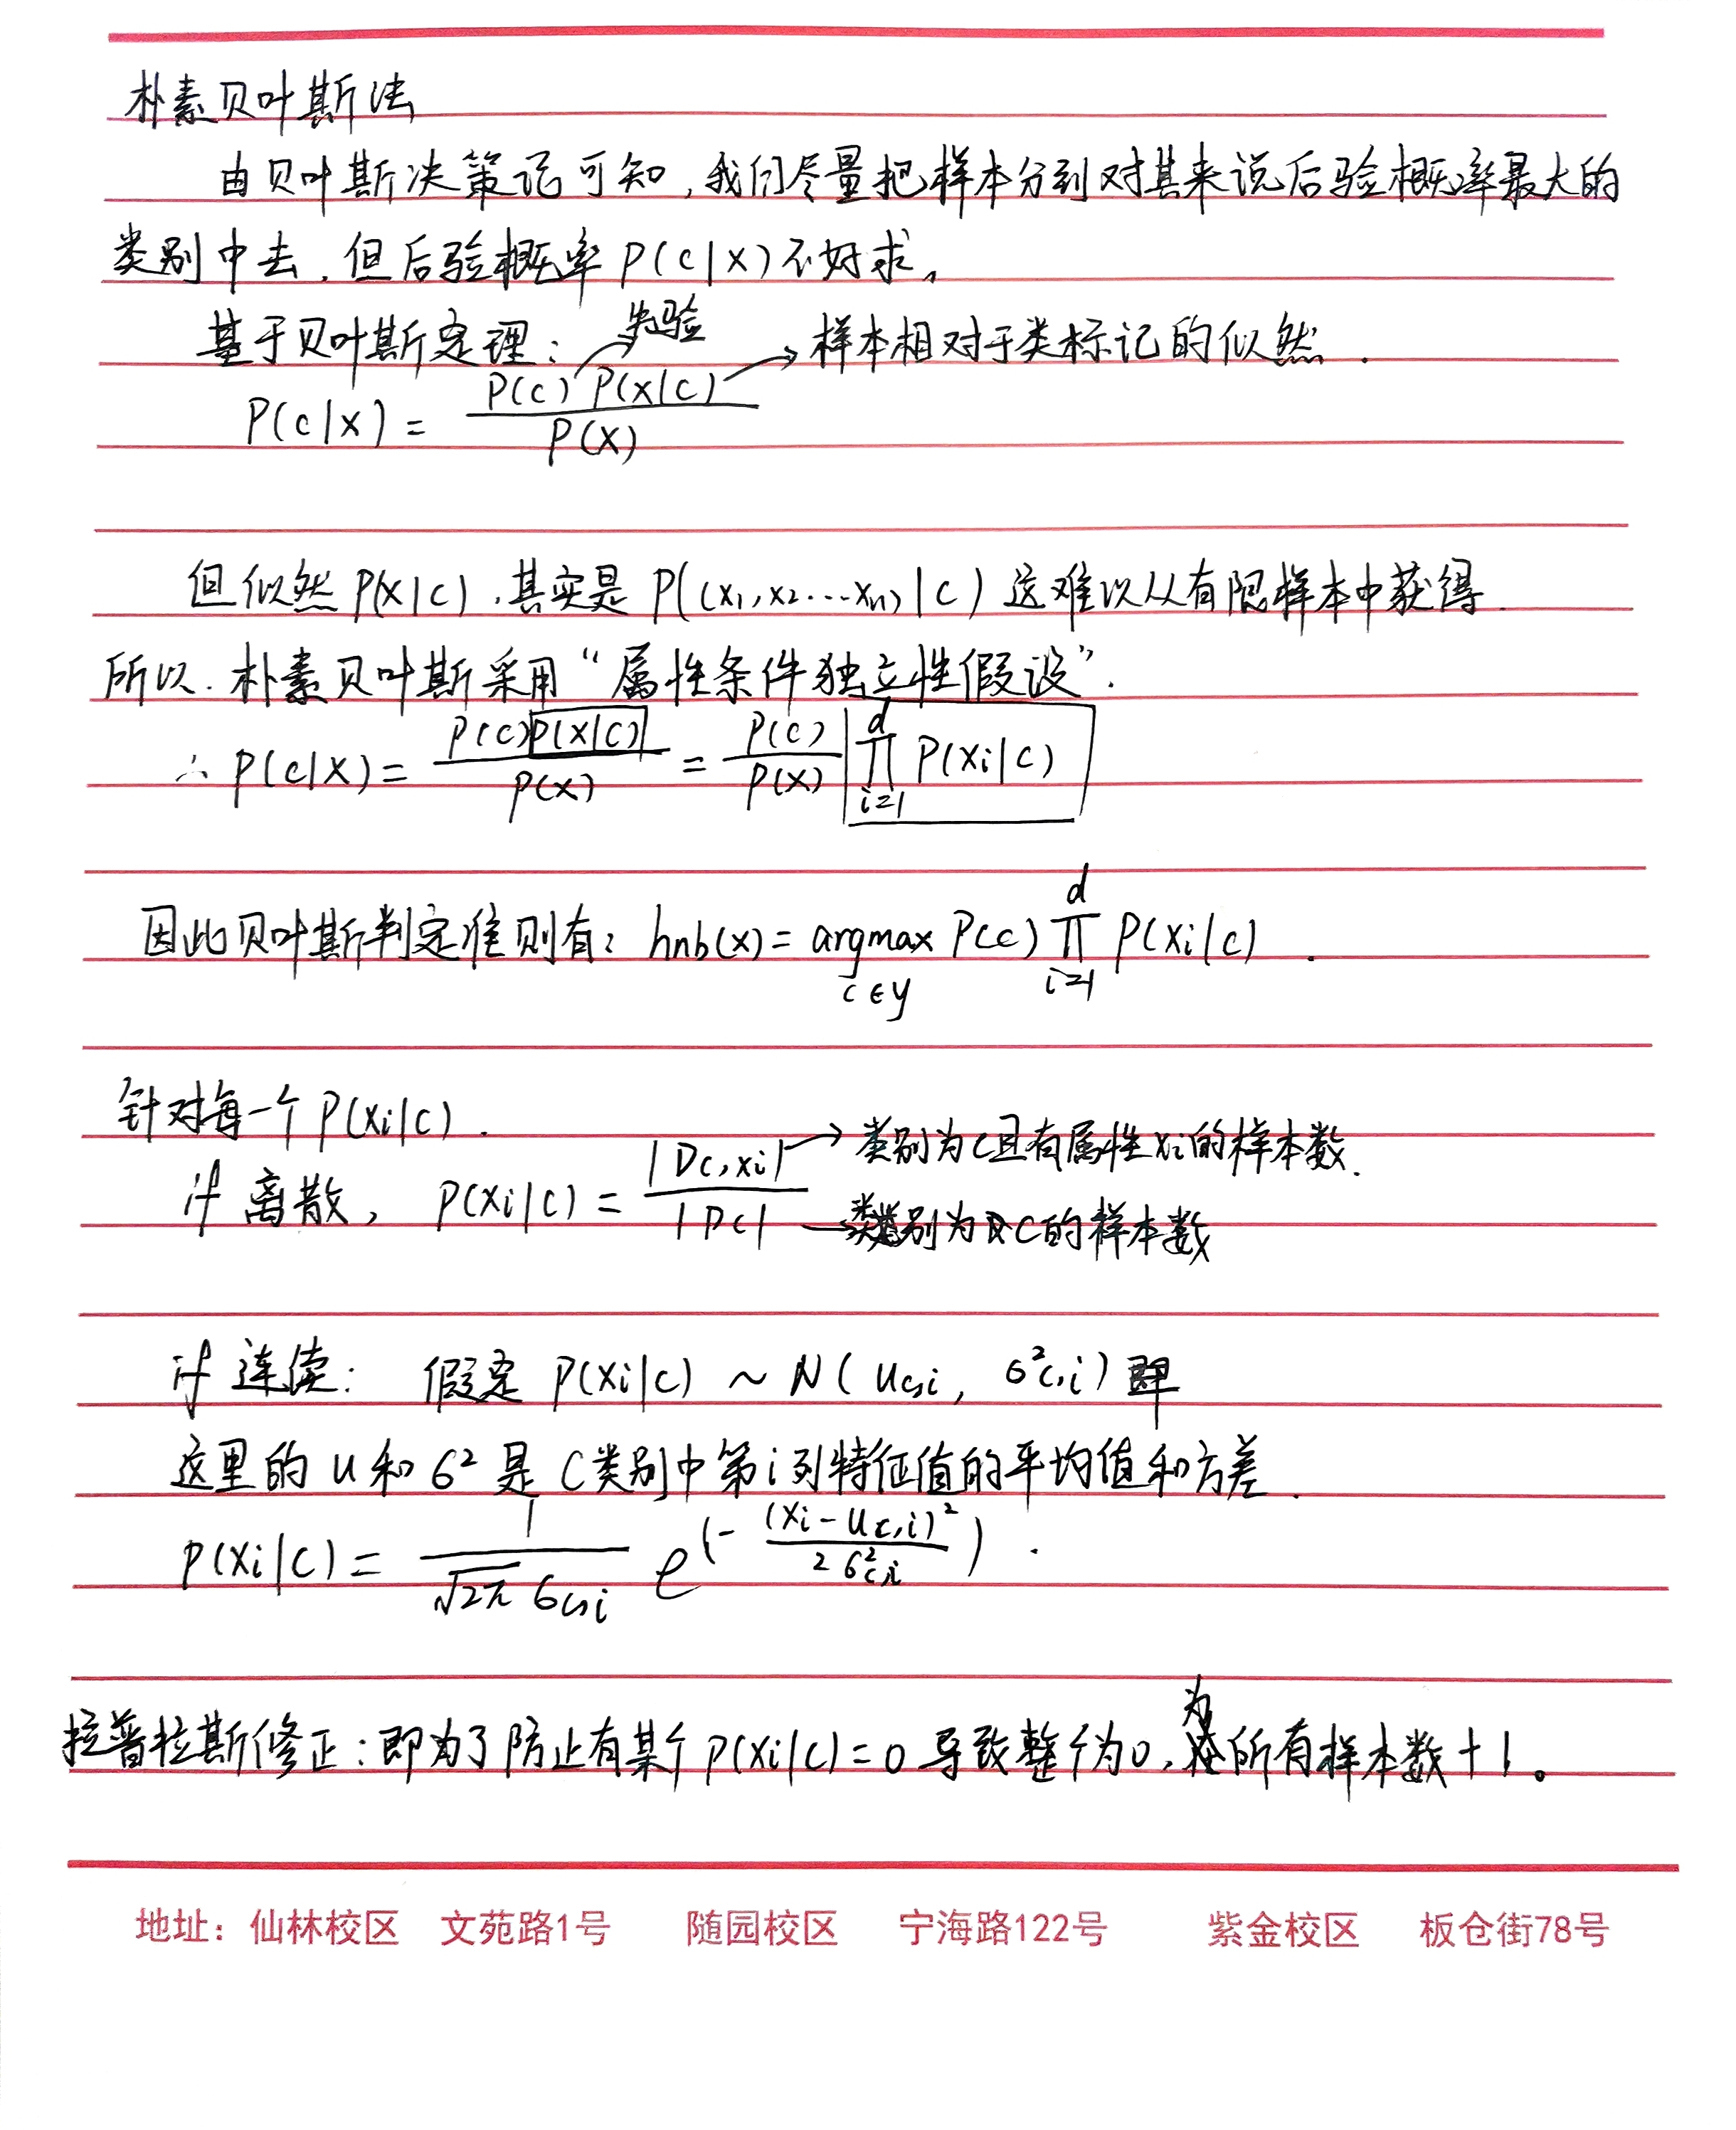 朴素贝叶斯法
由贝叶斯决策论可知,我们尽量把样本分到对其来说后验概率最大的
类别中去,但后验概率 P(c|x) 不好求。
基于贝叶斯定理: 先验 样本相对于类标记的似然.
P(c|x) = P(c) P(x|c) / P(x)
但似然 P(x|c),其实是 P((x1,x2...xn)|c) 这难以从有限样本中获得.
所以.朴素贝叶斯采用“属性条件独立性假设”.
∴ P(c|x) = P(c)P(x|c) / P(x) = P(c) / P(x) ∏_{i=1}^{d} P(xi|c)
因此贝叶斯判定准则有: hnb(x) = argmax_{c∈y} P(c) ∏_{i=1}^{d} P(xi|c).
针对每一个 P(xi|c).
if 离散, P(xi|c) = |Dc,xi| / |Dc|
类别为c且有属性xi的样本数.
类别为c的样本数
if 连续: 假定 P(xi|c) ~ N(uc,i, σ²c,i) 即
这里的 u 和 σ² 是 C类别中第i列特征值的平均值和方差.
P(xi|c) = 1 / √2π σc,i e^(- (xi-uc,i)² / 2σ²c,i).
拉普拉斯修正:即为了防止有某个 P(xi|c)=0 导致整个为0,为所有样本数+1。
地址: 仙林校区 文苑路1号 随园校区 宁海路122号 紫金校区 板仓街78号